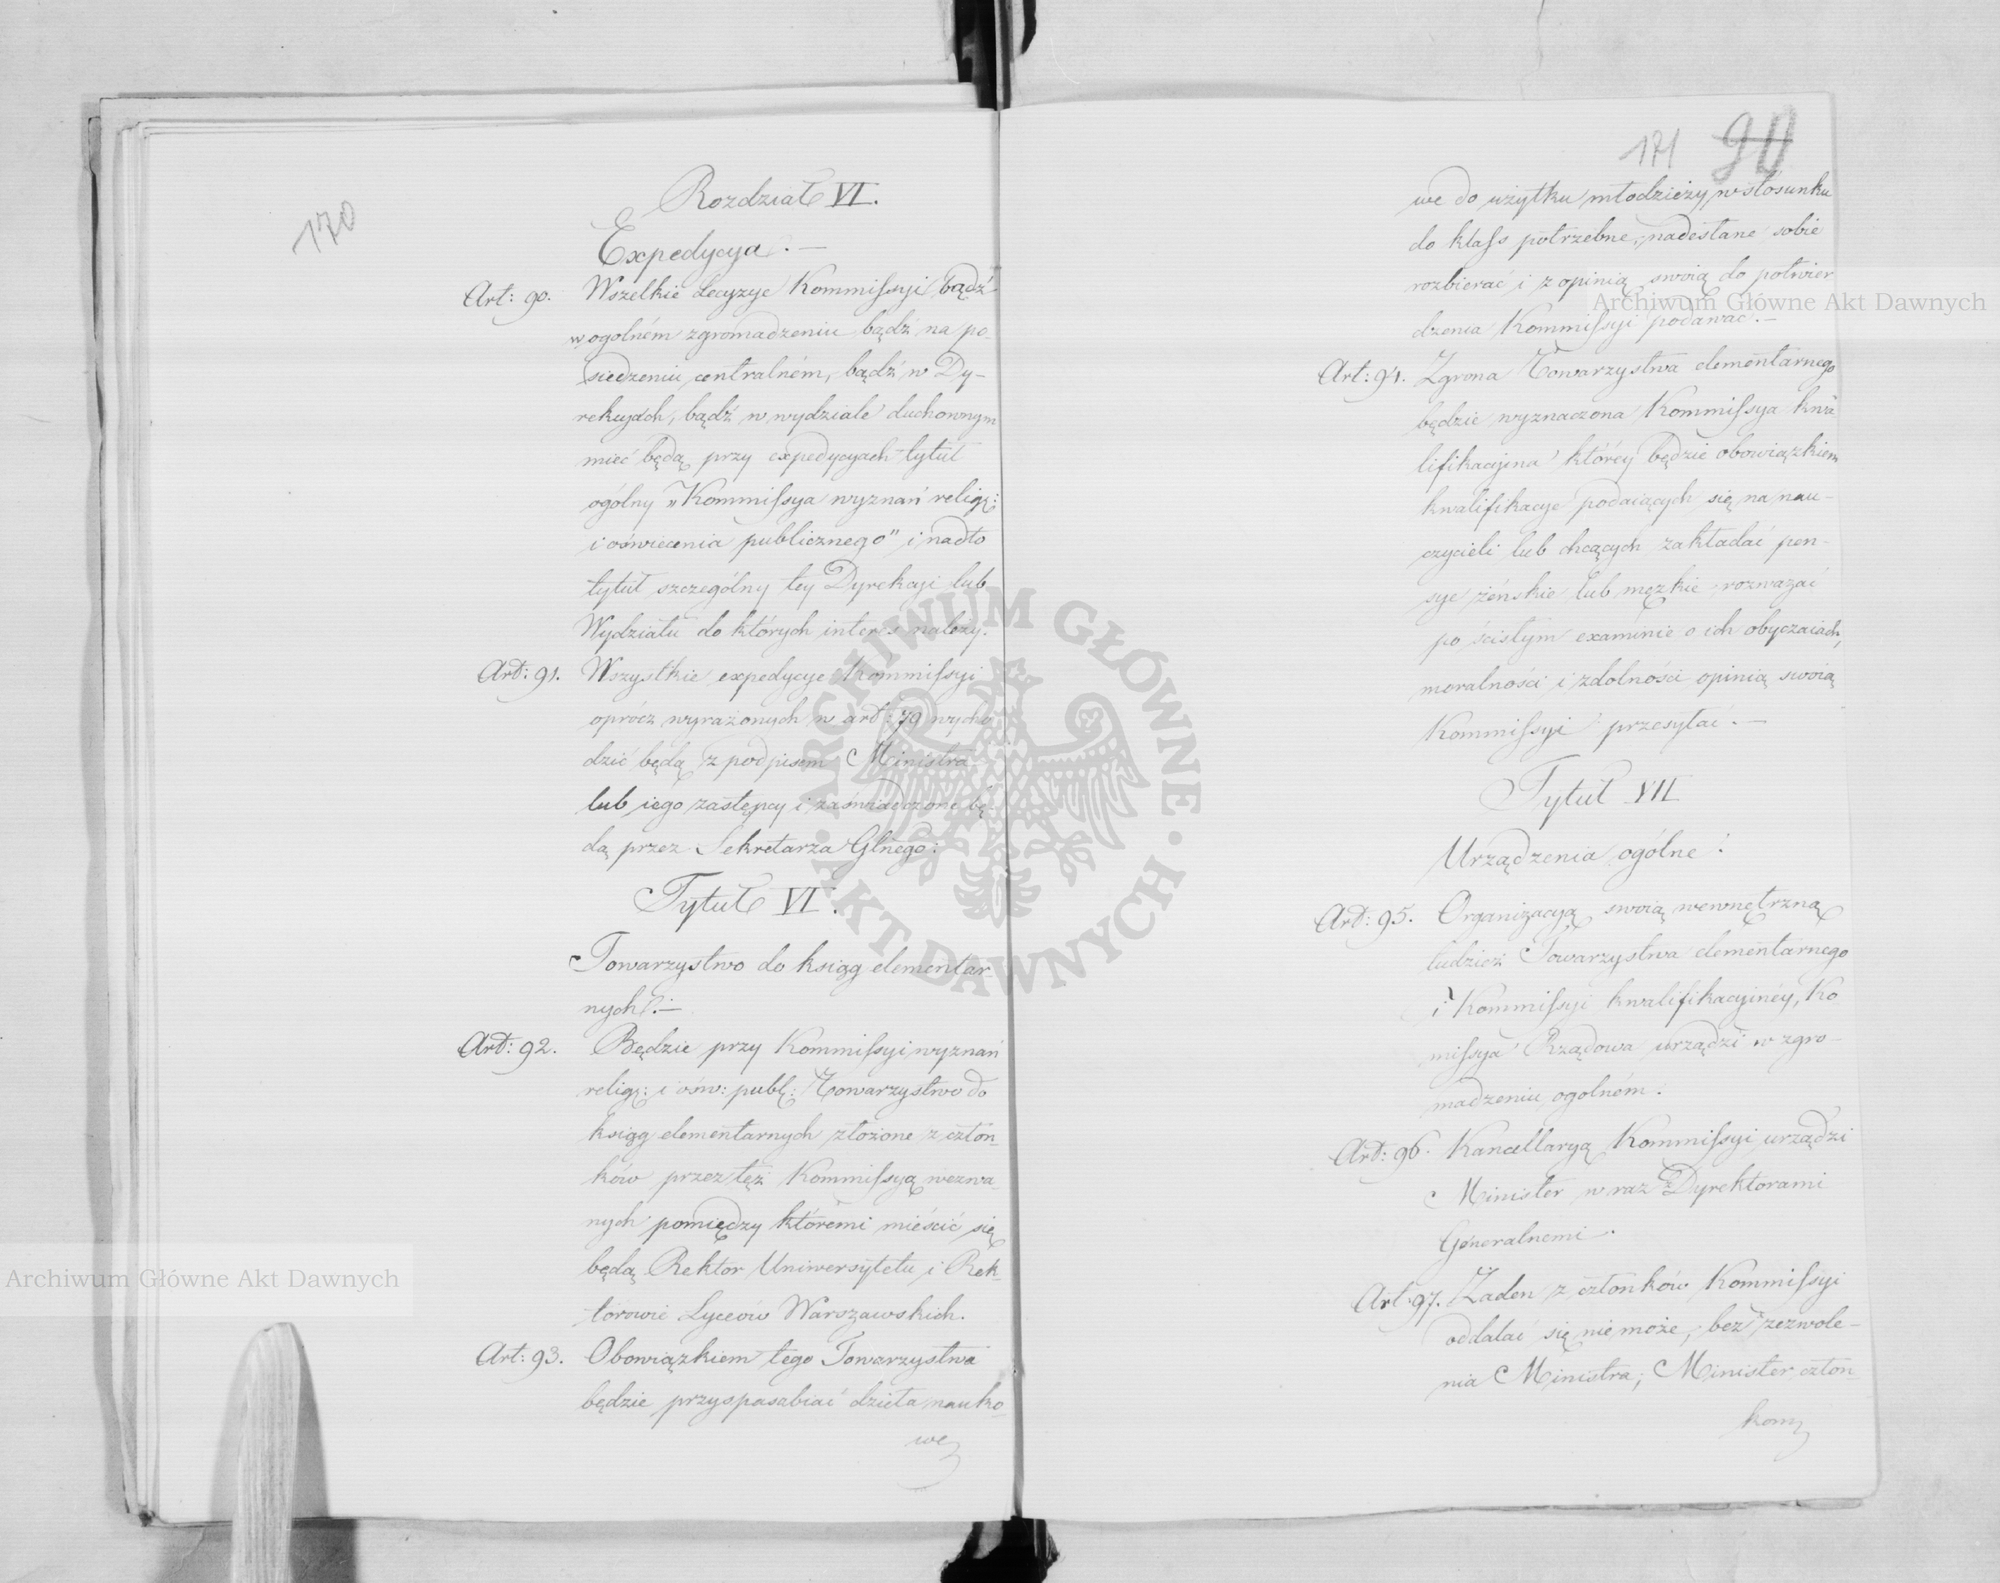 170
Rozdział VI.
Expedycya. —
Art: 90. Wszelkie decyzye Kommissyi bądź
w ogolném zgromadzeniu bądź na po-
siedzeniu centralném, bądź w Dy-
rekcyach, bądź w wydziale duchownym
mieć będą przy expedycyach tytuł
ogólny „Kommissya wyznań relig:
i oświecenia publicznego" i nadto
tytuł szczególny tey Dyrekcyi lub
Wydziału do których interes należy.
Art: 91. Wszystkie expedycye Kommissyi
oprócz wyrażonych w art: 79 wycho
dzić będą z podpisem Ministra
lub iego zastępcy i zaświadczone bę-
dą przez Sekretarza Glnego:
Tytuł VI.
Towarzystwo do ksiąg elementar-
nych. —
Art: 92. Będzie przy Kommissyi wyznań
relig: i ośw: publ: Towarzystwo do
ksiąg elementarnych złożone z człon-
ków przez tęż Kommissyą wezwa-
nych pomiędzy któremi mieścić się
będą Rektor Uniwersytetu i Rek-
torowie Lyceów Warszawskich.
Art: 93. Obowiązkiem tego Towarzystwa
będzie przysposabiać dzieła nauko-
we
171 90
we do użytku młodzieży w stosunku
do klass potrzebne, nadesłane sobie
rozbierać i z opinią swoią do potwier
dzenia Kommissyi podawać. —
Art: 94. Zgrona Towarzystwa elementarnego
będzie wyznaczona Kommissya kwa
lifikacyina którey będzie obowiązkiem
kwalifikacye podaiących się na nau-
czycieli lub chcących zakładać pen-
sye żeńskie lub męzkie rozważać
po ścisłym examinie o ich obyczaiach,
moralności i zdolności opinią swoią
Kommissyi przesyłać. —
Tytuł VII
Urządzenia ogólne:
Art: 95. Organizacyą swoią wewnętrzną
tudzież Towarzystwa elementarnego
i Kommissyi kwalifikacyinéy, Ko
missya Rządowa urządzi w zgro-
madzeniu ogolném.
Art: 96. Kancellaryą Kommissyi urządzi
Minister w raz z Dyrektorami
Generalnemi.
Art: 97. Żaden z członków Kommissyi
oddalać się nie może, bez zezwole-
nia Ministra; Minister człon-
kom
Archiwum Główne Akt Dawnych
Archiwum Główne Akt Dawnych
ARCHIWUM GŁÓWNE · AKT DAWNYCH ·